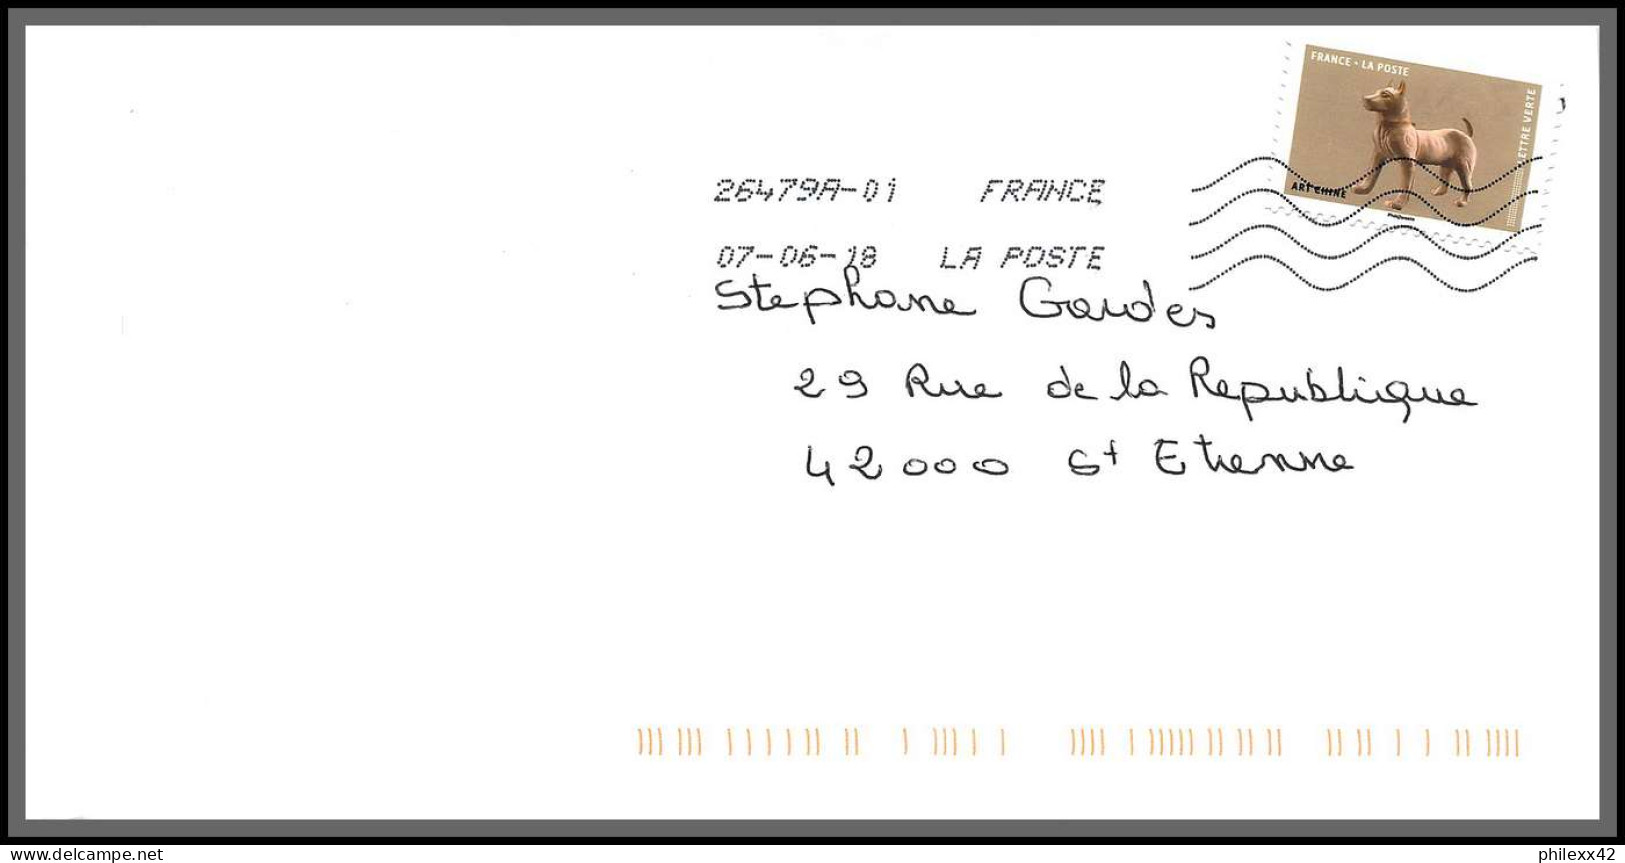 FRANCE • LA POSTE
LETTRE VERTE
ART CHINE
26479A-01 FRANCE
07-06-18 LA POSTE
Stephane Gardes
29 Rue de la Republique
42000 St Etienne
www.delcampe.net
philexx42